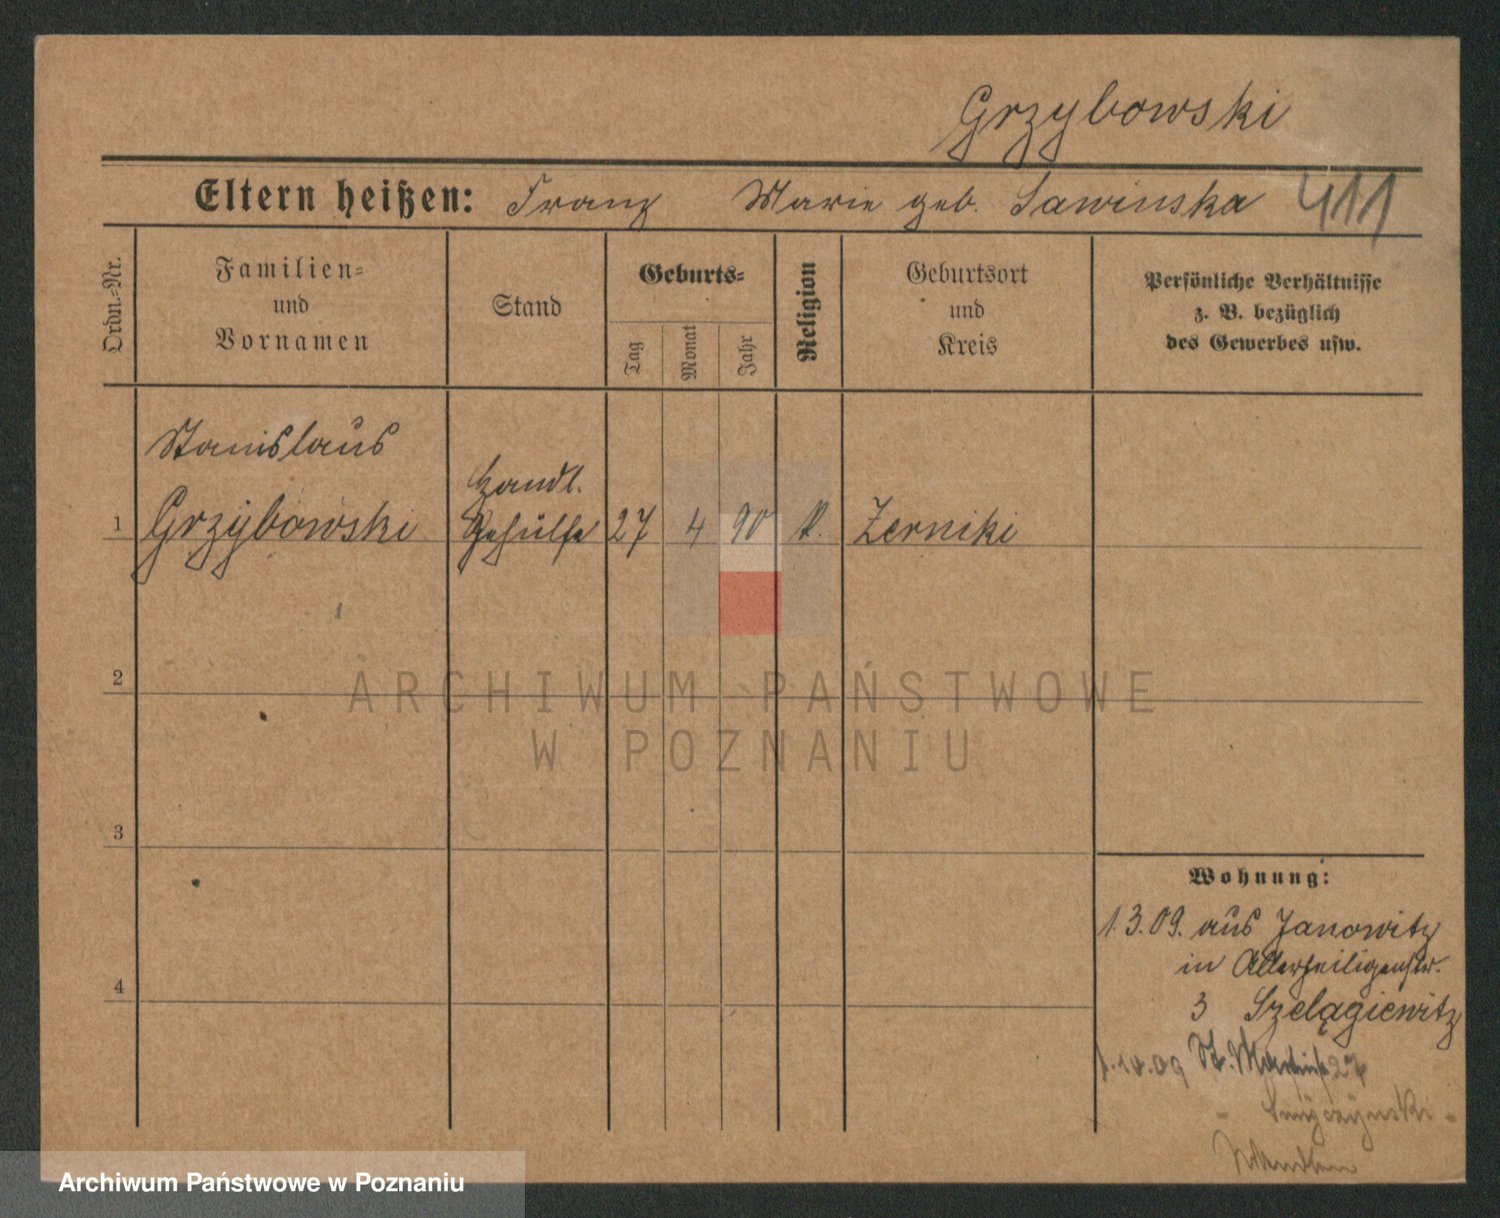 Grzybowski
Eltern heißen: Franz Marie geb. Sawinska 411
Ordn.-Nr.
Familien-
und
Vornamen
Stand
Geburts-
Tag
Monat
Jahr
Religion
Geburtsort
und
Kreis
Persönliche Verhältnisse
z. B. bezüglich
des Gewerbes usw.
Stanislaus
Handl.
1 Grzybowski Gehülfe 27 4 90 k. Zerniki
2
ARCHIWUM PAŃSTWOWE
W POZNANIU
3
Wohnung:
1.3.09. aus Janowitz
in Allerheiligenstr.
4
3 Szelągiewitz
1.10.09 St. Martinstr 27
Archiwum Państwowe w Poznaniu